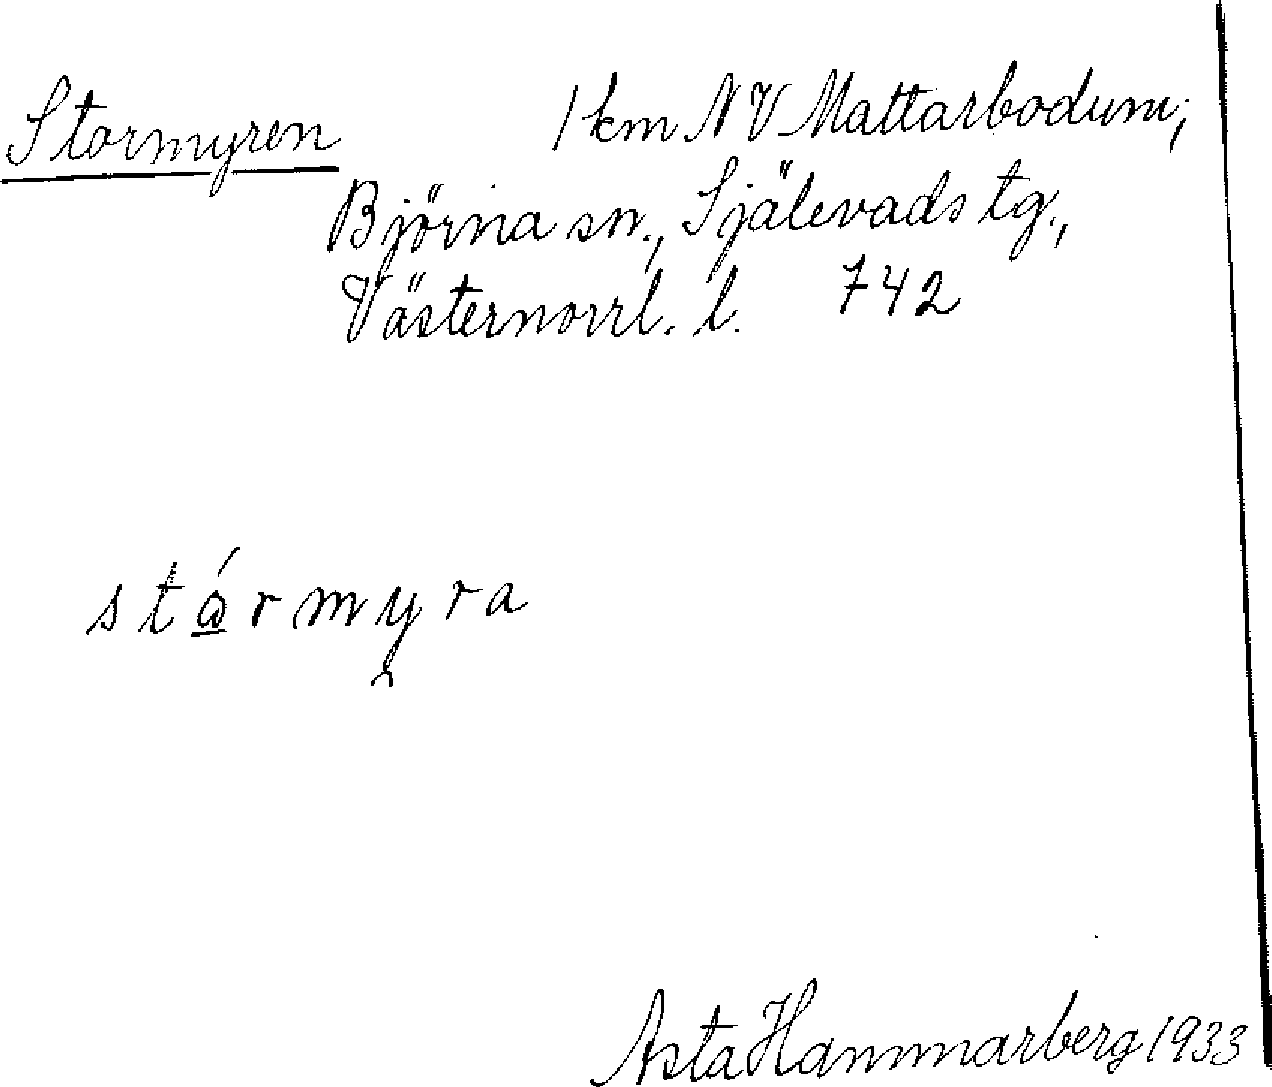 Stormyren 1 km NV Mattarbodum;
Björna sn., Själevads tg.,
Västernorrl. l. 742
stǻrmyra
Asta Hammarberg 1933